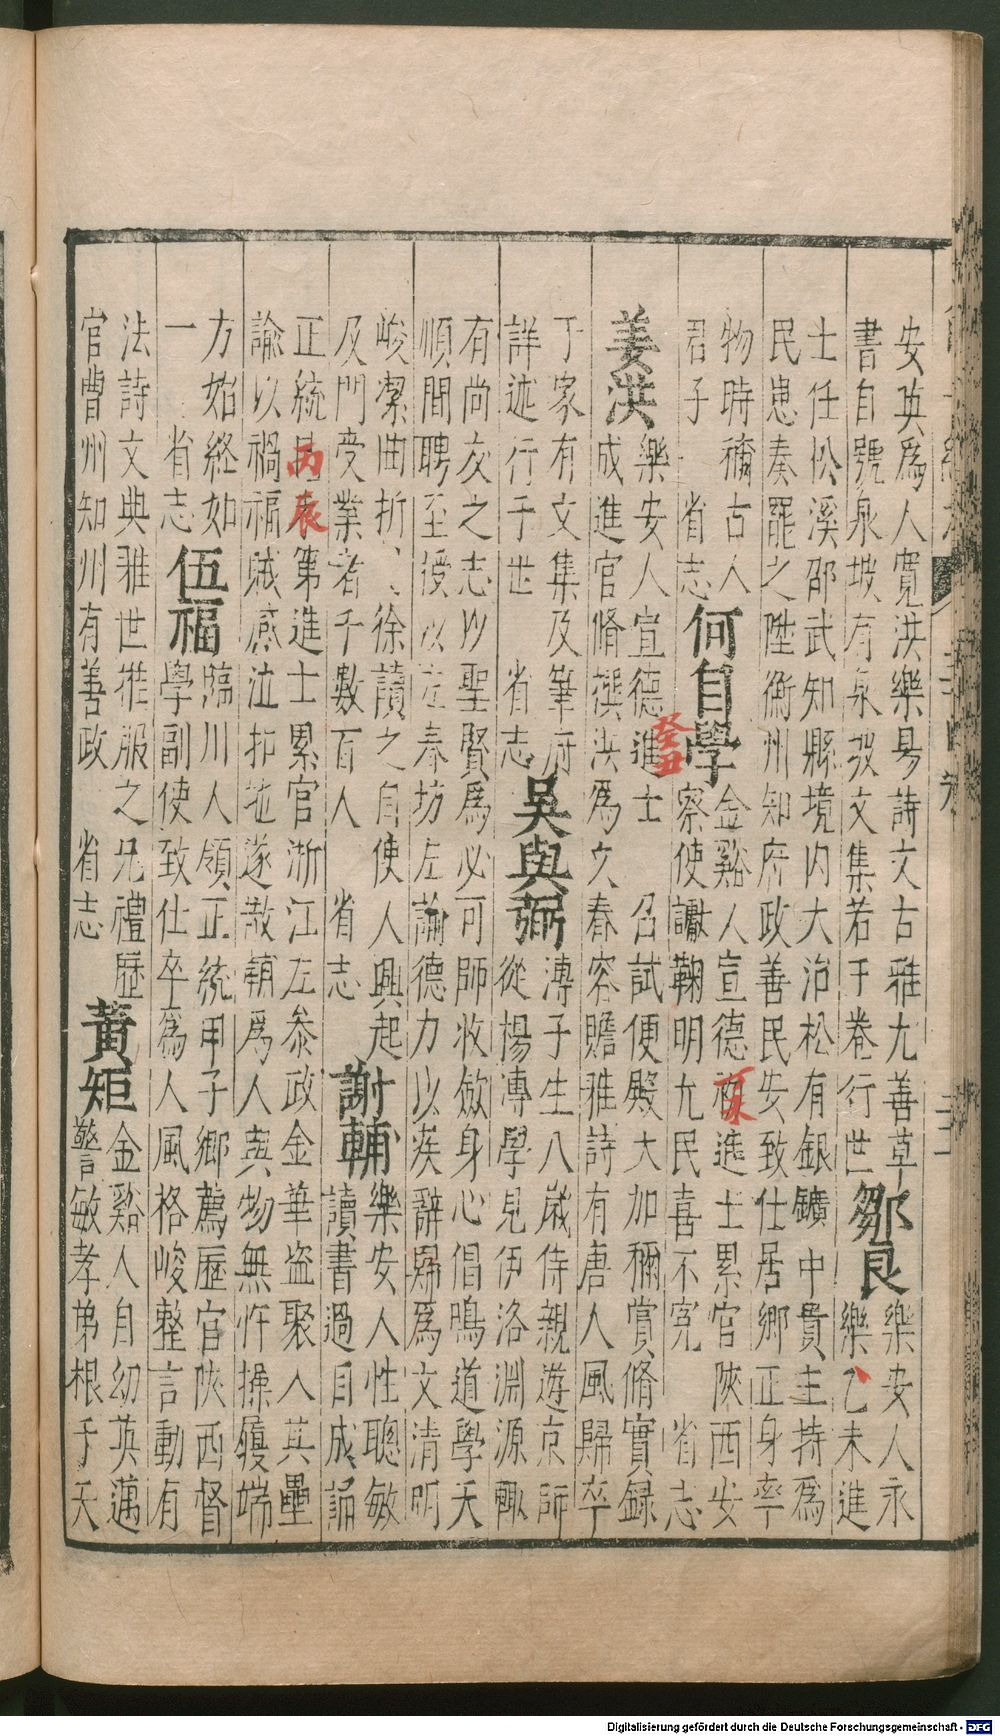 安英爲人寬洪樂易詩文古雅尤善草
書自號泉坡有泉坡文集若干卷行世
鄒良
樂安人永
樂乙未進
士任松溪邵武知縣境内大治松有銀鑛中貴主持爲
民患奏罷之陞衡州知府政善民安致仕居鄉正身率
物時稱古人
君子 省志
何自學
金谿人宣德丁未進士累官陝西安
察使讞鞠明允民喜不冤 省志
姜洪
樂安人宣德癸丑進士 召試便殿大加稱賞脩實録
成進官脩撰洪爲文春容贍雅詩有唐人風歸卒
于家有文集及筆府
詳述行于世 省志
吳與弼
溥子生八歲侍親遊京師
從楊溥學見伊洛淵源輒
有尚友之志以聖賢爲必可師收斂身心倡鳴道學天
順間聘至授以左春坊左諭德力以疾辭歸爲文清明
峻潔曲折徐讀之自使人興起
及門受業者千數百人 省志
謝輔
樂安人性聰敏
讀書過目成誦
正統丙辰第進士累官浙江左叅政金華盗聚入其壘
諭以禍福賊感泣拜地遂散輔爲人與物無忤操履端
方始終如
一 省志
伍福
臨川人領正統甲子鄉薦歷官陝西督
學副使致仕卒爲人風格峻整言動有
法詩文典雅世推服之兄禮歷
官曹州知州有善政 省志
黃矩
金谿人自幼英邁
警敏孝弟根于天
Digitalisierung gefördert durch die Deutsche Forschungsgemeinschaft - DFG